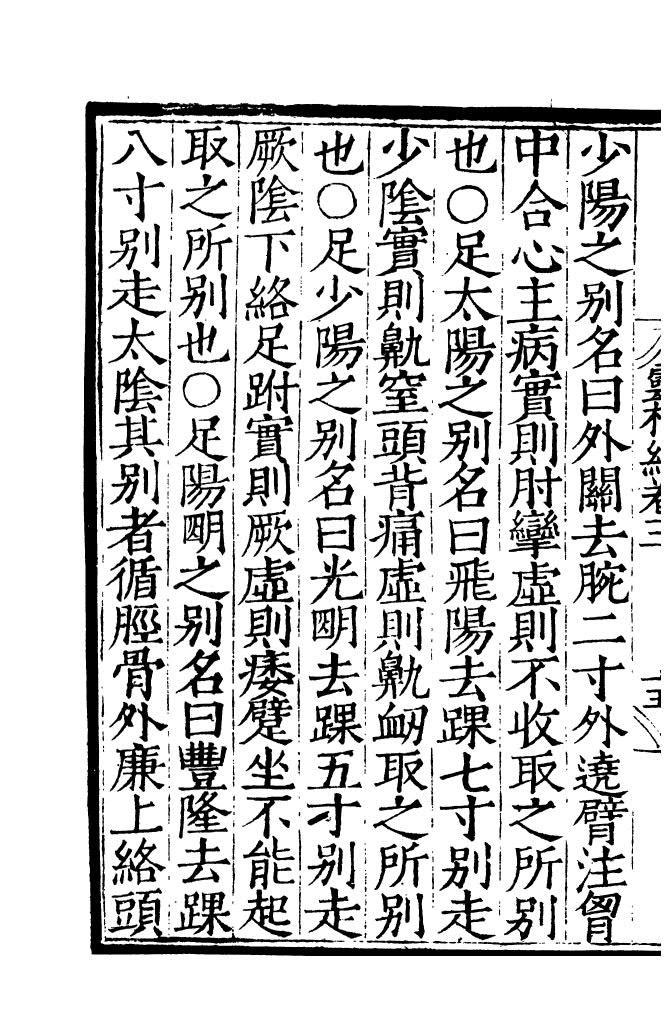 靈樞經卷三
十五
少陽之别名曰外關去腕二寸外遶臂注胷
中合心主病實則肘攣虛則不收取之所别
也○足太陽之别名曰飛陽去踝七寸别走
少陰實則鼽窒頭背痛虛則鼽衂取之所别
也○足少陽之别名曰光明去踝五寸别走
厥陰下絡足跗實則厥虛則痿躄坐不能起
取之所别也○足陽明之别名曰豐隆去踝
八寸别走太陰其别者循脛骨外廉上絡頭